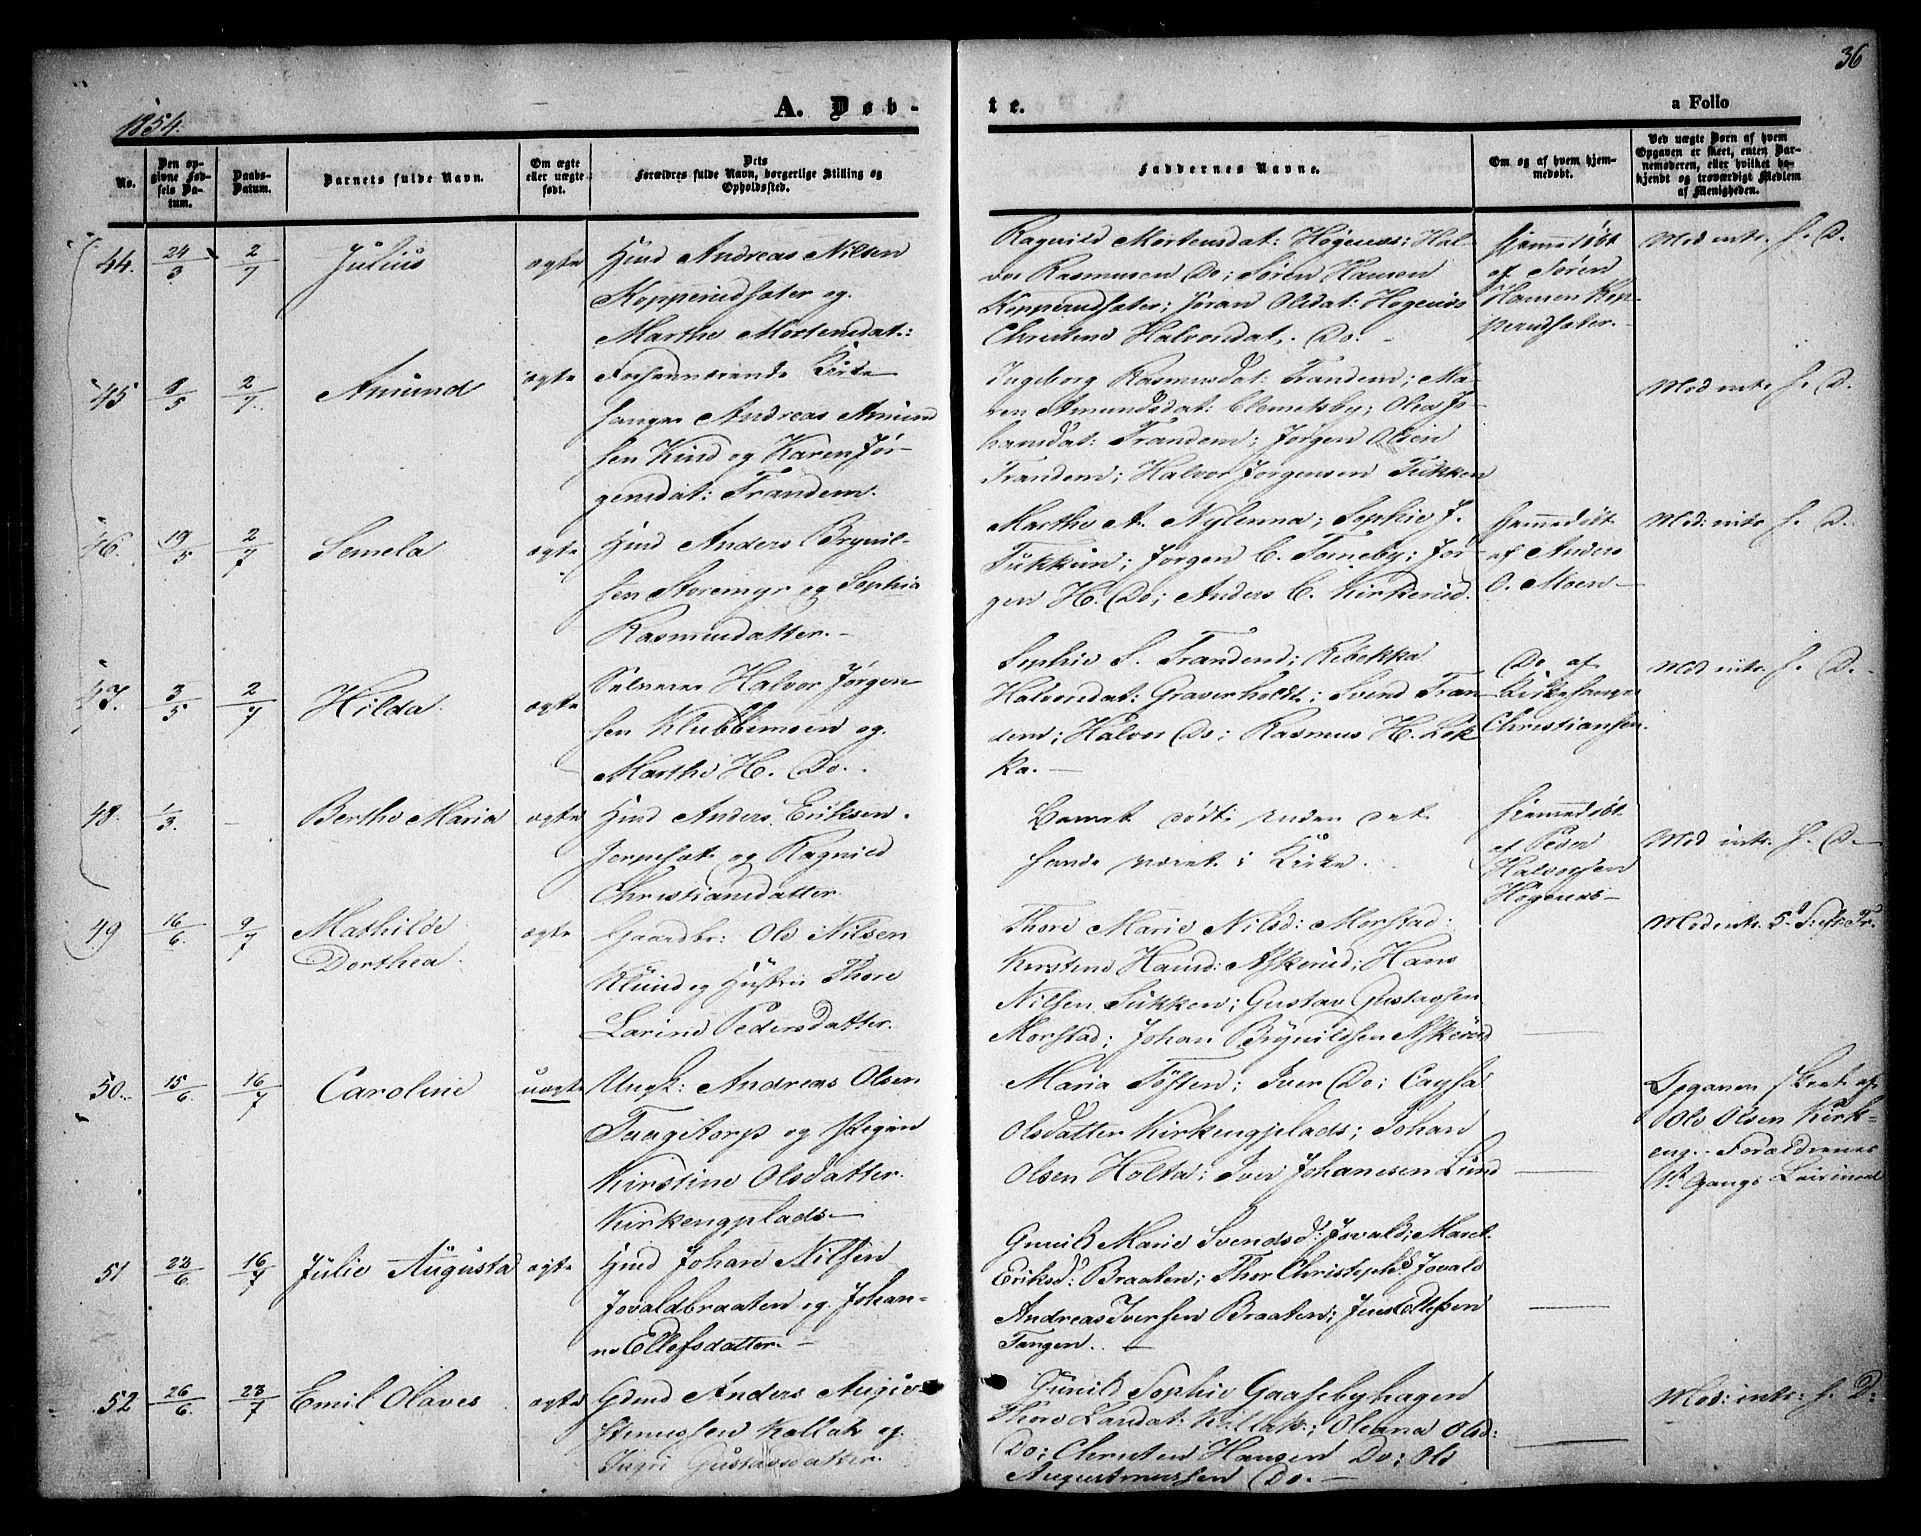 36
1854.
A. Døb-
te.
a Folio
No.
Den op-
givne Fød-
sels Da-
tum.
Daabs-
Datum.
Barnets fulde Navn.
Om ægte
eller uægte
født.
Dets
Forældres fulde Navn, borgerlige Stilling og
Opholdssted.
Faddernes Navne.
Om og af hvem hjem-
medøbt.
Ved uægte Børn af hvem
Opgaven er skeet, enten Bar-
nemoderen, eller hvilket be-
kjendt og troværdigt Medlem
af Menigheden.
44. 24/3 2/7 Julius ægte
Hmd Andreas Nilsen
Kopperudsæter og
Marthe Mortensdat:
Ragnild Mortensdat: Høgenæs; Hal-
vor Rasmusen Do; Søren Hansen
Kopperudsæter; Jøran Olsdat: Høgenæs
Christine Halvorsdat. Do.
hjemmedøbt
af Søren
Hansen Kop-
perudsæter.-
Mod: intr. s. D.
45 8/5 2/7. Amund ægte
Forhenværende Kirke
sanger Andreas Amund
sen Kind og Karen Jør-
gensdat: Trandem.
Ingeborg Rasmusdat: Trandem; Ma-
ren Amundsdat: Clemetsby; Olea Jo-
hansdat: Trandem; Jørgen Olsen
Trandem; Halvor Jørgensen Tukken
Mod intr. s. D.
46. 19/5 2/7 Semela ægte
Hmd Anders Brynil-
sen Storemyr og Sophia
Rasmusdatter.-
Marthe A. Nylenna; Sophie J.
Tukkun; Jørgen C. Tomeby; Jør-
gen H. Do; Anders C. Kirkerud.
hjemmedøbt
af Anders
O. Moen-
Mod: intr. s. D.
47. 3/5 2/7 Hilda. ægte
Selveier Halvor Jørgen
sen Klubbemoen og
Marthe H. Do.
Sophie S. Trandem; Rebekka
Halvorsdat: Graverholdt; Svend Tran
dem; Halvor Do; Rasmus H. Løk
ka.-
Do. af
Kirkesanger
Christiansen.
Mod intr. s. D.-
48. 1/3. - Berthe Maria ægte
Hmd Anders Eriksen.
Jerpeset og Ragnild
Christiansdatter.
Barnet død inden det
havde været i Kirke.
hjemmedøbt
af Peder
Halvorsen
Høgenæs-
Mod intr. s. D.-
49 16/6. 9/7 Mathilde
Dorthea. ægte
Gaardbr: Ole Nilsen
Klund og Hustru Thore
Larine Pedersdatter.
Thore Marie Nilsd: Morstad:
Kirstine Hansd: Askerud; Hans
Nilsen Tukken; Gustav Gustavsen
Morstad; Johan Brynildsen Askerud
Mod intr. 5. S. eft. Tr.
50. 15/6. 16/7 Caroline uægte
Ungk: Andreas Olsen
Taagetorp og Pigen
Kirstine Olsdatter.
Kirkengplads-
Maria Toften; Iver Do; Caysa
Olsdatter Kirkengplads; Johan
Olsen Holta; Iver Johanesen Lund
Opgaven skeet af
Ole Olsen Kirk-
eng.- Forældrenes
1ste Gangs Leiermaal
51 22/6. 16/7 Julie Augusta ægte
Hmd Johan Nilsen
Jovaldbraaten og Johan-
ne Ellefsdatter.-
Gunild Marie Svendsd: Jovald; Maret
Eriksd: Braaten; Thor Christophs. Jovald
Andreas Iversen Braaten; Jens Ellefsen
Tangen.-
52 26/6. 23/7 Emil Olaves ægte
Gdmd Anders Augu-
stinussen Kollak og
Ingri Gustavsdatter.
Gunild Sophie Gaasebyhagen
Thore Larsdat: Kollak; Oleana Olsd:
Do; Christen Hansen Do; Ole
Augustinussen Do.-
Mod: intr: s. D: